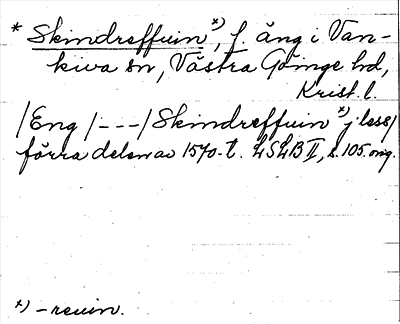 * Skindreffuin x), f. äng i Van-
kiva sn, Västra Göinge hd,
Krist. l.
/Eng/---/Skindreffuin x) j lass/
förra delen av 1570-t. LSLB II, s. 105 omg.
x) -reuin.